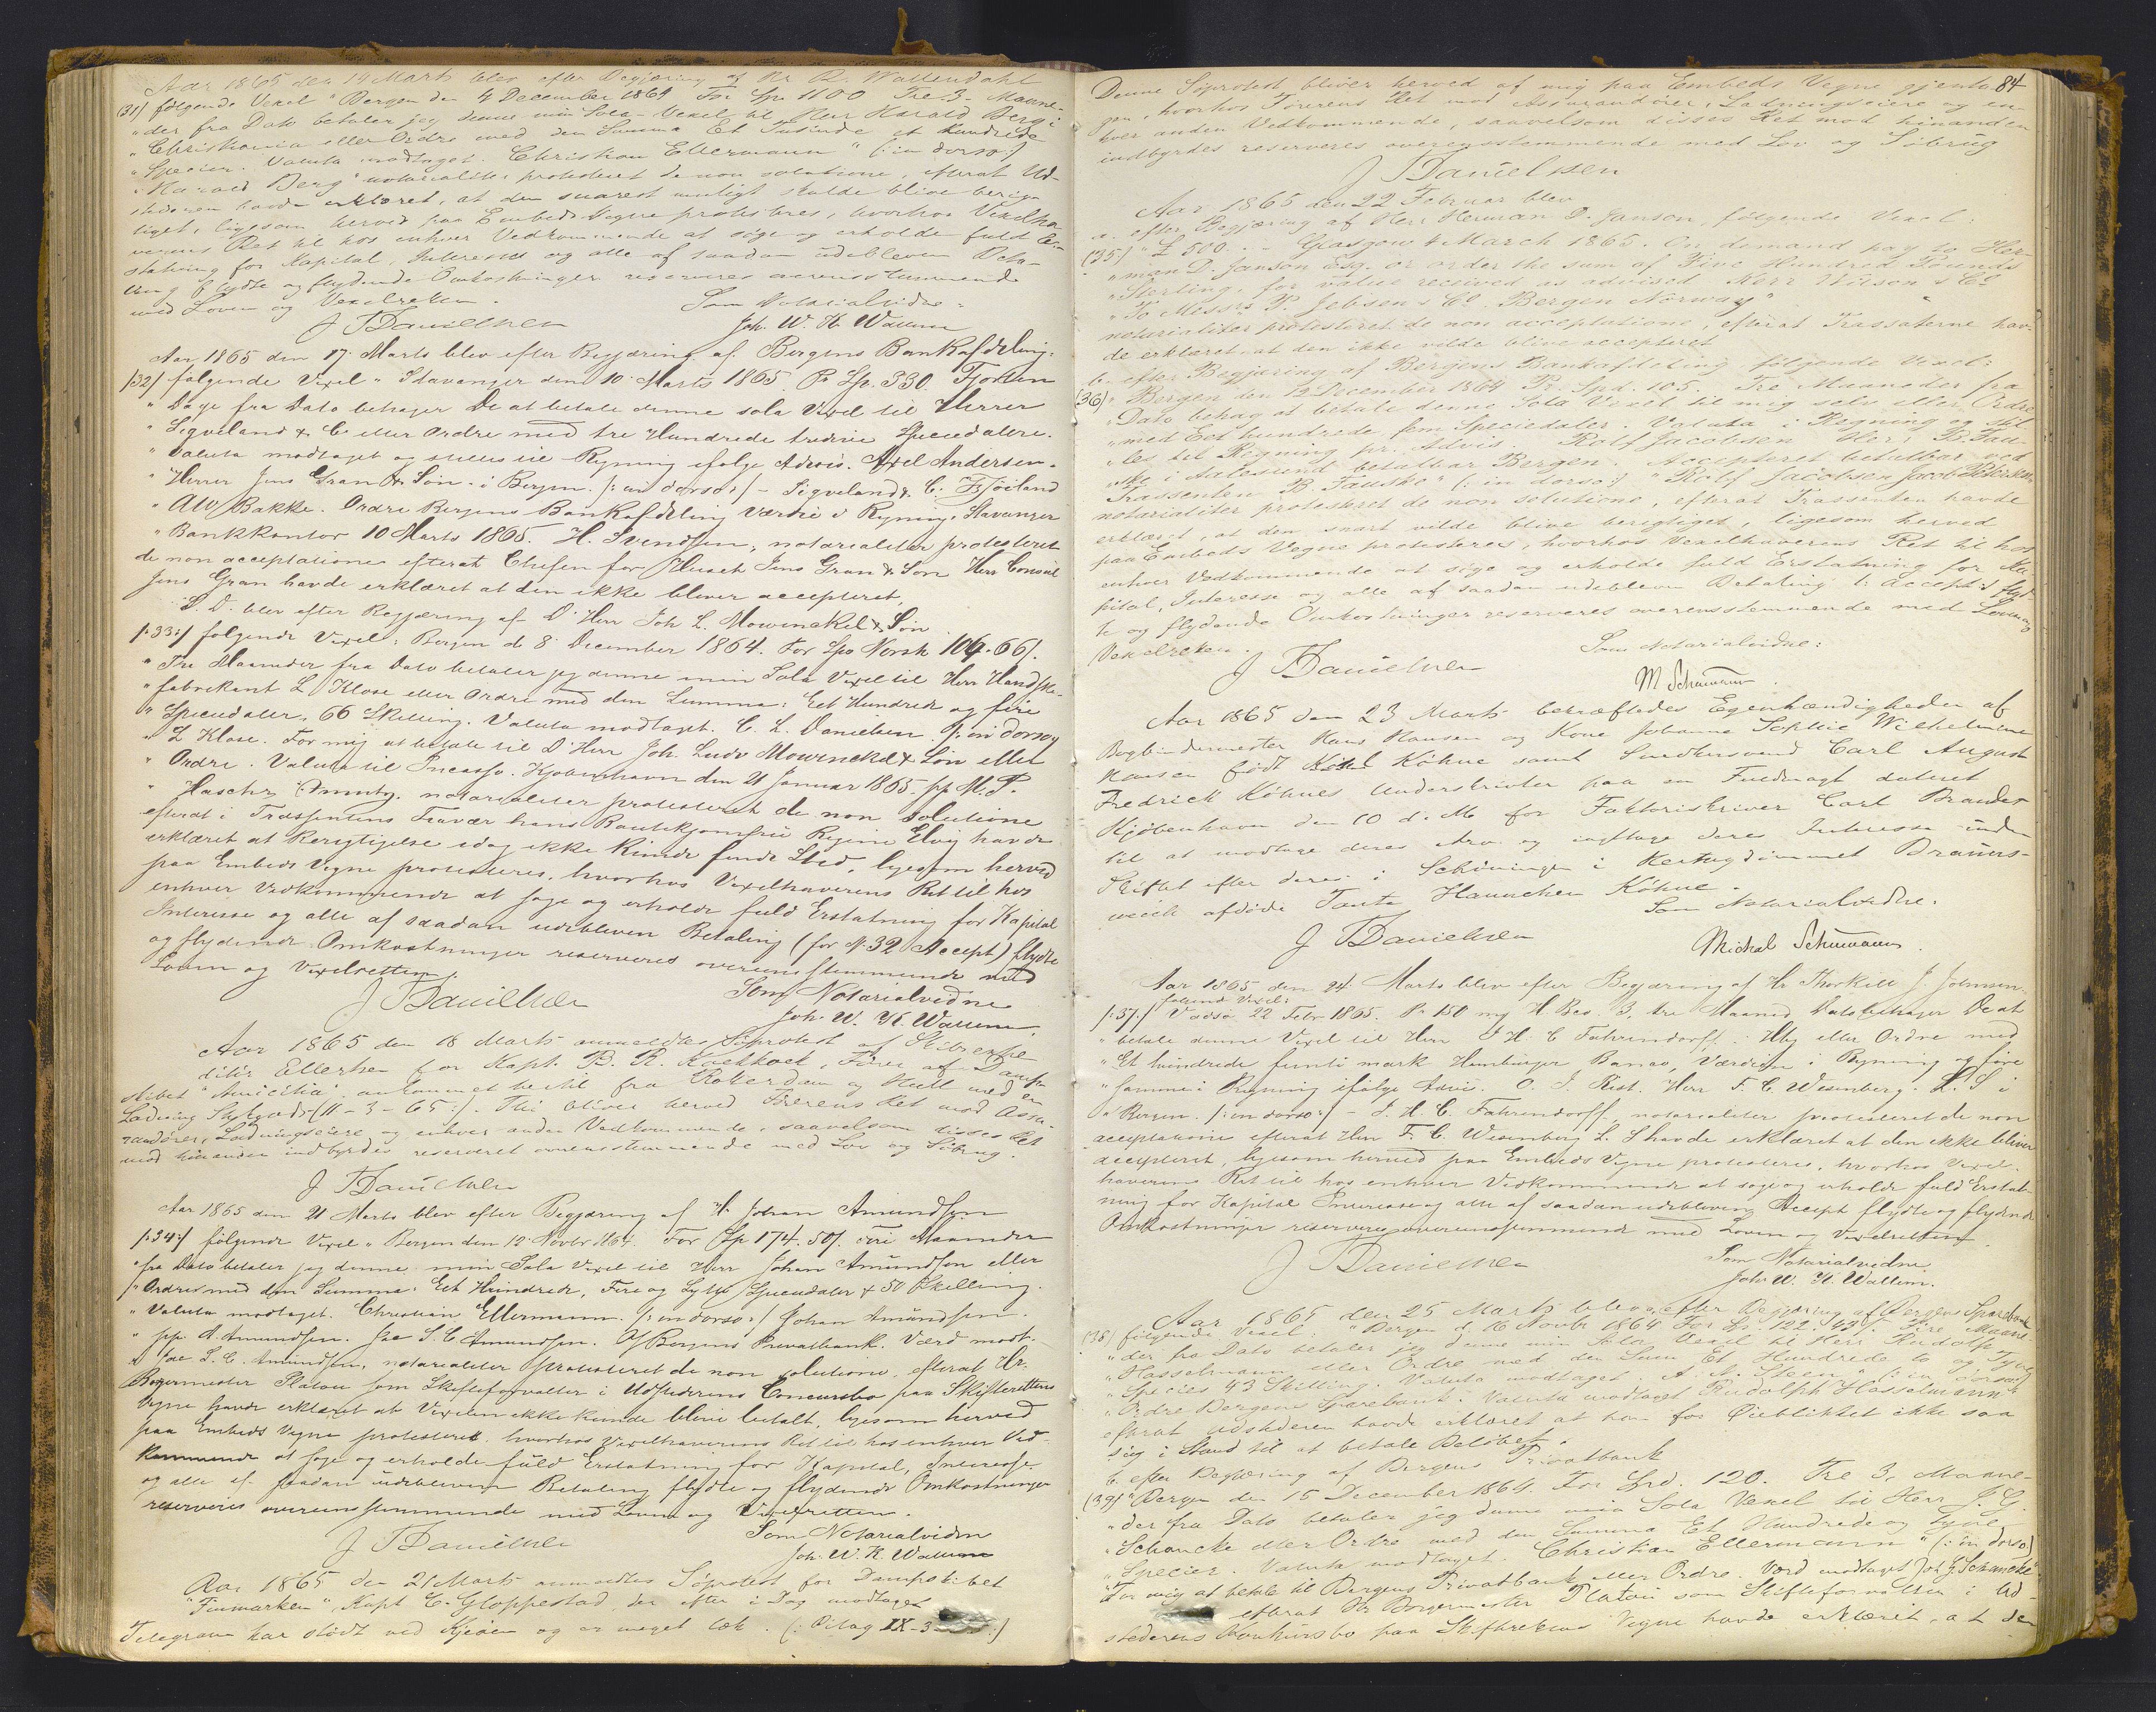 Aar 1865 den 14 Marts blev efter Begjæring af Hr R. Wallendahl
(31) følgende Vexel "Bergen den 4 December 1864 For Sp 1100 Tre 3 Maane-
"der fra Dato betaler jeg denne min Sola-Vexel til Herr Harald Berg i
"Christiania eller Ordre med den Summa Et Tusinde et hundrede
"Specier. Valuta modtaget. Christian Ellermann" (: in dorso:)
"Harald Berg" notarialiter protesteret de non solutione, efterat Ud-
stederen havde erklæret, at den snarest muligt skulde blive berig-
tiget, ligesom herved paa Embeds Vegne protesteres, hvorhos Vexelha-
verens Ret til hos enhver Vedkommende at søge og erholde fuld Er-
statning for Kapital, Interesse og alle af saadan udebleven Beta-
ling flydte og flydende Omkostninger reserveres overensstemmende
med Loven og Vexelretten.
Som Notarialvidne:
J Danielsen
Joh. W. K. Wallem
Aar 1865 den 17. Marts blev efter Begjæring af Bergens Bankafdeling
/32/ følgende Vexel "Stavanger den 10 Marts 1865. Pr Sp. 330. Fjorten
"Dage fra Dato behager De at betale denne sola Vexel til Herrer
"Sigveland & C. eller Ordre med tre Hundrede tredive Speciedalere.
"Valuta modtaget og stilles til Regning ifølge Advis. Axel Andersen.
"Herrer Jens Gran & Søn i Bergen. /: in dorso:/ - Sigveland & C.
"Bakke. Ordre Bergens Bankafdeling Værdie i Regning. Stavanger
"Bankkontor 10 Marts 1865. H. Svendsen, notarialiter protesteret
de non acceptatione efterat Chefen for Huset Jens Gran & Søn Herr Consul
Jens Gran havde erklæret at den ikke bliver accepteret,
S. D. blev efter Begjæring af D'Herr Joh L. Mowinckel & Søn
/:33:/ følgende Vexel: Bergen d. 8 December 1864. For Spd Norsk 104. 66/.
"Tre Maaneder fra Dato betaler jeg denne min Sola Vexel til Herr Handske-
"fabrikant L Klose eller Ordre med den Summa: Eet Hundrede og fire
"Speciedaler, 66 Skilling. Valuta modtaget. C. L. Danielsen /: in dorso:/
"L Klose. For mig at betale til D'Herr Joh. Ludv Mowinckel & Søn eller
"Ordre. Valuta til Incasso. Kjøbenhavn den 21 Januar 1865. pp M. P.
notarialiter protesteret de non solutione
efterat i Trassentens Fravær hans Regine Elvig havde
erklæret at Berigtigelse idag ikke kunde finde Sted, ligesom herved
paa Embeds Vegne protesteres, hvorhos Vexelhaverens Ret til hos
enhver Vedkommende at søge og erholde fuld Erstatning for Kapital
Interesse og alle af saadan udebleven Betaling (for N: 32 Accept) flydte
og flydende Omkostninger reserveres overensstemmende med
Loven og Vexelretten.
Som Notarialvidne
J Danielsen
Joh. W. K. Wallem
Aar 1865 den 18 Marts anmeldtes Søprotest af Skibsexpe-
ditør Ellerhen for Kapt. B. R. Kockkoek, Fører af Damp-
skibet "Amicitia" ankommet hertil fra Roterdam og Hull med en
Ladning Stykgods (11-3-65:). Thi bliver herved Førerens Ret mod Assu-
randører, Ladningseiere og enhver anden Vedkommende, saavelsom disses Ret
mod hinanden indbyrdes reserveret overensstemmende med Lov og Søbrug.
J Danielsen
Aar 1865 den 21 Marts blev efter Begjæring af Hr Johan Amundsen
/:34:/ følgende Vexel "Bergen den 12 Novbr 1864. For Sp 174. 50/. Fire Maaneder
"fra Dato betaler jeg denne min Sola Vexel til Herr Johan Amundsen eller
"Ordre med den Summa: Eet Hundrede, Fire og Sytti Speciedaler & 50 Skilling.
"Valuta modtaget. Christian Ellermann. /: in dorso:/ Johan Amundsen.
"pp. A. Amundsen. Jac S. C. Amundsen. Bergens Privatbank. Værd modt.
"Jac S. C. Amundsen, notarialiter protesteret de non solutione, efterat Hr.
Borgermester Platou som Skifteforvalter i Udstederens Concursbo paa Skifterettens
Vegne havde erklæret at Vexelen ikke kunde blive betalt, ligesom herved
paa Embeds Vegne protesteret, hvorhos Vexelhaverens Ret til hos enhver Ved-
kommende at søge og erholde fuld Erstatning for Kapital, Interesse
og alle af saadan udebleven Betaling flydte og flydende Omkostninger
reserveres overensstemmende med Loven og Vexelretten.
Som Notarialvidne
J Danielsen
Joh. W. K. Wallem
Aar 1865 den 21 Marts anmeldtes Søprotest for Dampskibet
"Finmarken", Kapt C. Gloppestad, der efter i Dag modtaget
Telegram har stødt ved Kjeøen og er meget læk. (: Bilag IX-3
84
Denne Søprotest bliver herved af mig paa Embeds Vegne gjenta-
gen, hvorhos Førerens Ret mod Assurandører, Ladningseiere og en-
hver anden Vedkommende, saavelsom disses Ret mod hinanden
indbyrdes reserveres overensstemmende med Lov og Søbrug
J Danielsen
Aar 1865 den 22 Februar blev
a. efter Begjæring af Herr Herman D. Janson, følgende Vexel:
(35:) "£ 500. - Glasgow 4 March 1865. On demand pay to Her-
"man D. Janson Esq. or order the sum of Five Hundred Pounds
"Sterling, for value received as advised Kerr Wilson & Co
"To Messrs P. Jebsen & Co. Bergen Norway"
notarialiter protesteret de non acceptatione, efterat Trassaterne hav-
de erklæret at den ikke vilde blive accepteret
b. efter Begjæring af Bergens Bankafdeling følgende Vexel:
(36) "Bergen den 12 December 1864 Pr. Spd. 105. Tre Maaneder fra
"Dato behag at betale denne Sola Vexel til mig selv eller Ordre
"med Eet hundrede fem Speciedaler. Valuta i Regning og stil-
"les til Regning pr. Advis. Rolf Jacobsen. Herr B. Fau-
"ske i Aalesund betalbar Bergen. Accepteret betalbar ved
Trassenten B. Fauske" (: in dorso:) "Rolf Jacobsen Jacob Petersen
notarialiter protesteret de non solutione, efterat Trassenten havde
erklæret, at den snart vilde blive berigtiget, ligesom herved
paa Embeds Vegne protesteres, hvorhos Vexelhaverens Ret til hos
enhver Vedkommende at søge og erholde fuld Erstatning for Ka-
pital, Interesse og alle af saadan udebleven Betaling (: Accept:) flyd-
te og flydende Omkostninger reserveres overensstemmende med Loven og
Vexelretten.
Som Notarialvidne:
J Danielsen
M Schumann.
Aar 1865 den 23 Marts bekræftedes Egenhændigheden af
Bogbindermester Hans Hansen og Kone Johanne Sophie Wilhelmine
Hansen født Köhne samt Smedkesvend Carl August
Fredrick Köhnes Underskrivter paa en Fuldmagt dateret
Kjöbenhavn den 10 d. M. for Faktoriskriver Carl Brandes
til at modtage deres Arv og iagttage deres Interesse under
Skiftet efter deres i Schöningen i Hertugdömmet Brauns-
weich afdöde Tante Hannchen Köhne.
Som Notarialvidne.
J Danielsen
Michal Schumann.
Aar 1865 den 24 Marts blev efter Begjæring af Hr Thorkill J. Johnsen
følgende Vexel:
/:37:/ Vadsø 22 Febr 1865. Pr 150 mg H Bco. 3, tre Maaned Dato behager De at
"betale denne Vexel til Herr J H. C Fahrendorff i Hbg eller Ordre med
"Et hundrede femti mark Hamburger Banco, Værdien i Regning og føre
"samme i Regning ifølge Advis. O. J. Kist. Herr F. C. Wesenberg. L. S i
"Bergen. /: in dorso:/ - J. H. C. Fahrendorff, notarialiter protesteret de non
acceptatione efterat Herr F. C. Wesenberg L. S havde erklæret at den ikke bliver
accepteret, ligesom herved paa Embeds Vegne protesteres, hvorhos Vexel-
haverens Ret til hos enhver Vedkommende at søge og erholde fuld Erstat-
ning for Kapital Interesse og alle af saadan udebleven Accept flydte og flydende
Omkostninger reserveres overensstemmende med Loven og Vexelretten
Som Notarialvidne
J Danielsen
Joh W. K. Wallem.
Aar 1865 den 25 Marts blev a. efter Begjæring af Bergens Sparebank
(38) følgende Vexel: "Bergen d. 16 Novbr 1864 For Sp. 122. 43/. Fire Maane-
"der fra Dato betaler jeg denne min Sola Vexel til Herr Rudolph
"Hasselmann eller Ordre med den Sum Et Hundrede to og Tyve
"Species 43 Skilling. Valuta modtaget. A. N. Steen (: in dorso:)
"Ordre Bergens Sparebank. Valuta modtaget Rudolph Hasselmann"
efterat Udstederen havde erklæret at han for Øieblikket ikke saa
sig i Stand til at betale Beløbet.
b. efter Begjæring af Bergens Privatbank
(39) "Bergen den 15 December 1864. For Spd. 120. Tre 3, Maane-
"der fra Dato betaler jeg denne min Sola Vexel til Herr J. G.
"Schancke eller Ordre med den Summa Et Hundrede og Tyve
"Specier. Valuta modtaget. Christian Ellermann" (: in dorso)
"For mig at betale til Bergens Privatbank eller Ordre. Værd modtaget Joh G. Schancke"
efterat Hr Borgermester Platou som Skifteforvalter i Ud-
stederens Konkursbo paa Skifterettens Vegne havde erklæret, at den